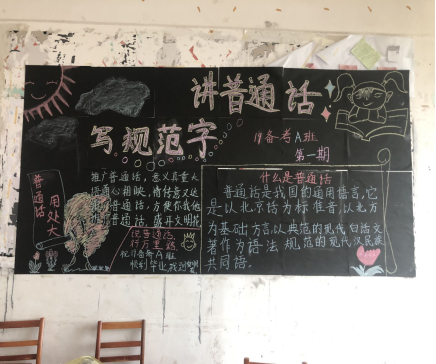 讲普通话
写规范字
19备考A班
第一期
普通话
用处大
推广普通话，意义真重大
语通心相映，情传意又达
普通话，方便你我他
普通话，盛开文明花
说普通话
行万里路
祝19备考A班
顺利毕业，找到
什么是普通话
普通话是我国的通用语言，它
是以北京话为标准音，以北方
为基础方言，以典范的现代白话文
著作为语法规范的现代汉民族
共同语。